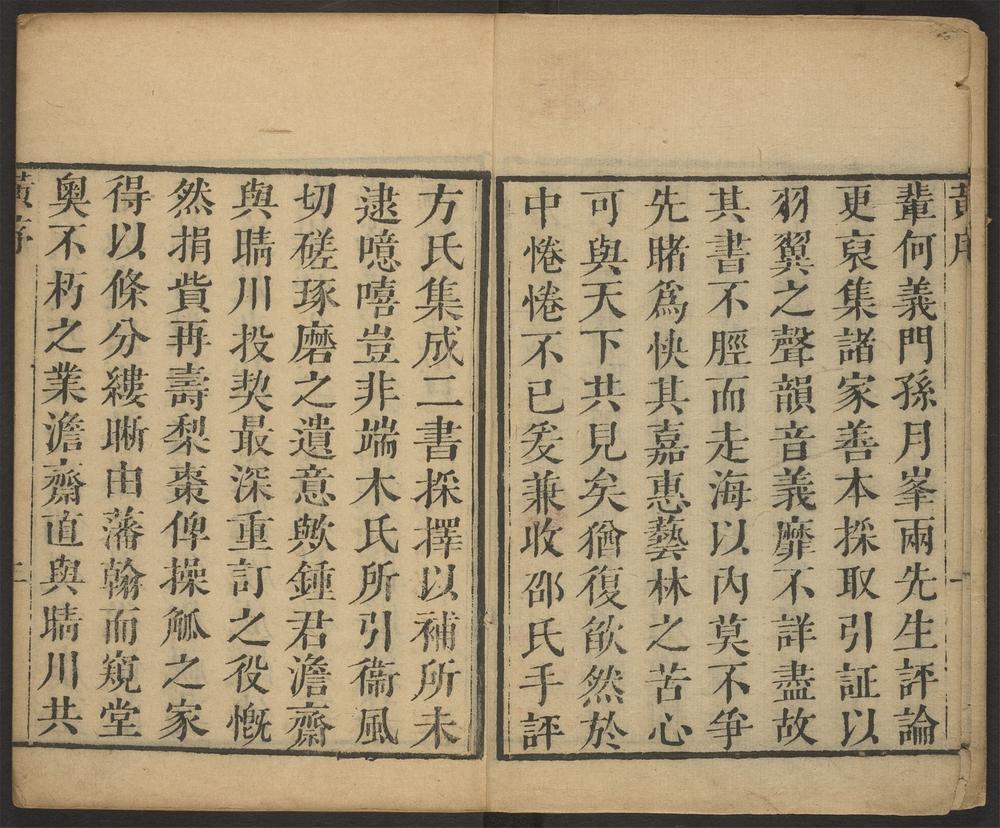 黃序
一
輩何義門孫月峯兩先生評論
更裒集諸家善本採取引証以
羽翼之聲韻音義靡不詳盡故
其書不脛而走海以內莫不爭
先睹爲快其嘉惠藝林之苦心
可與天下共見矣猶復欿然於
中惓惓不已爰兼收邵氏手評
方氏集成二書採擇以補所未
逮噫嘻豈非端木氏所引衞風
切磋琢磨之遺意歟鍾君澹齋
與晴川投契最深重訂之役慨
然捐貲再壽梨棗俾操觚之家
得以條分縷晰由藩翰而窺堂
奥不朽之業澹齋直與晴川共
黃序
二